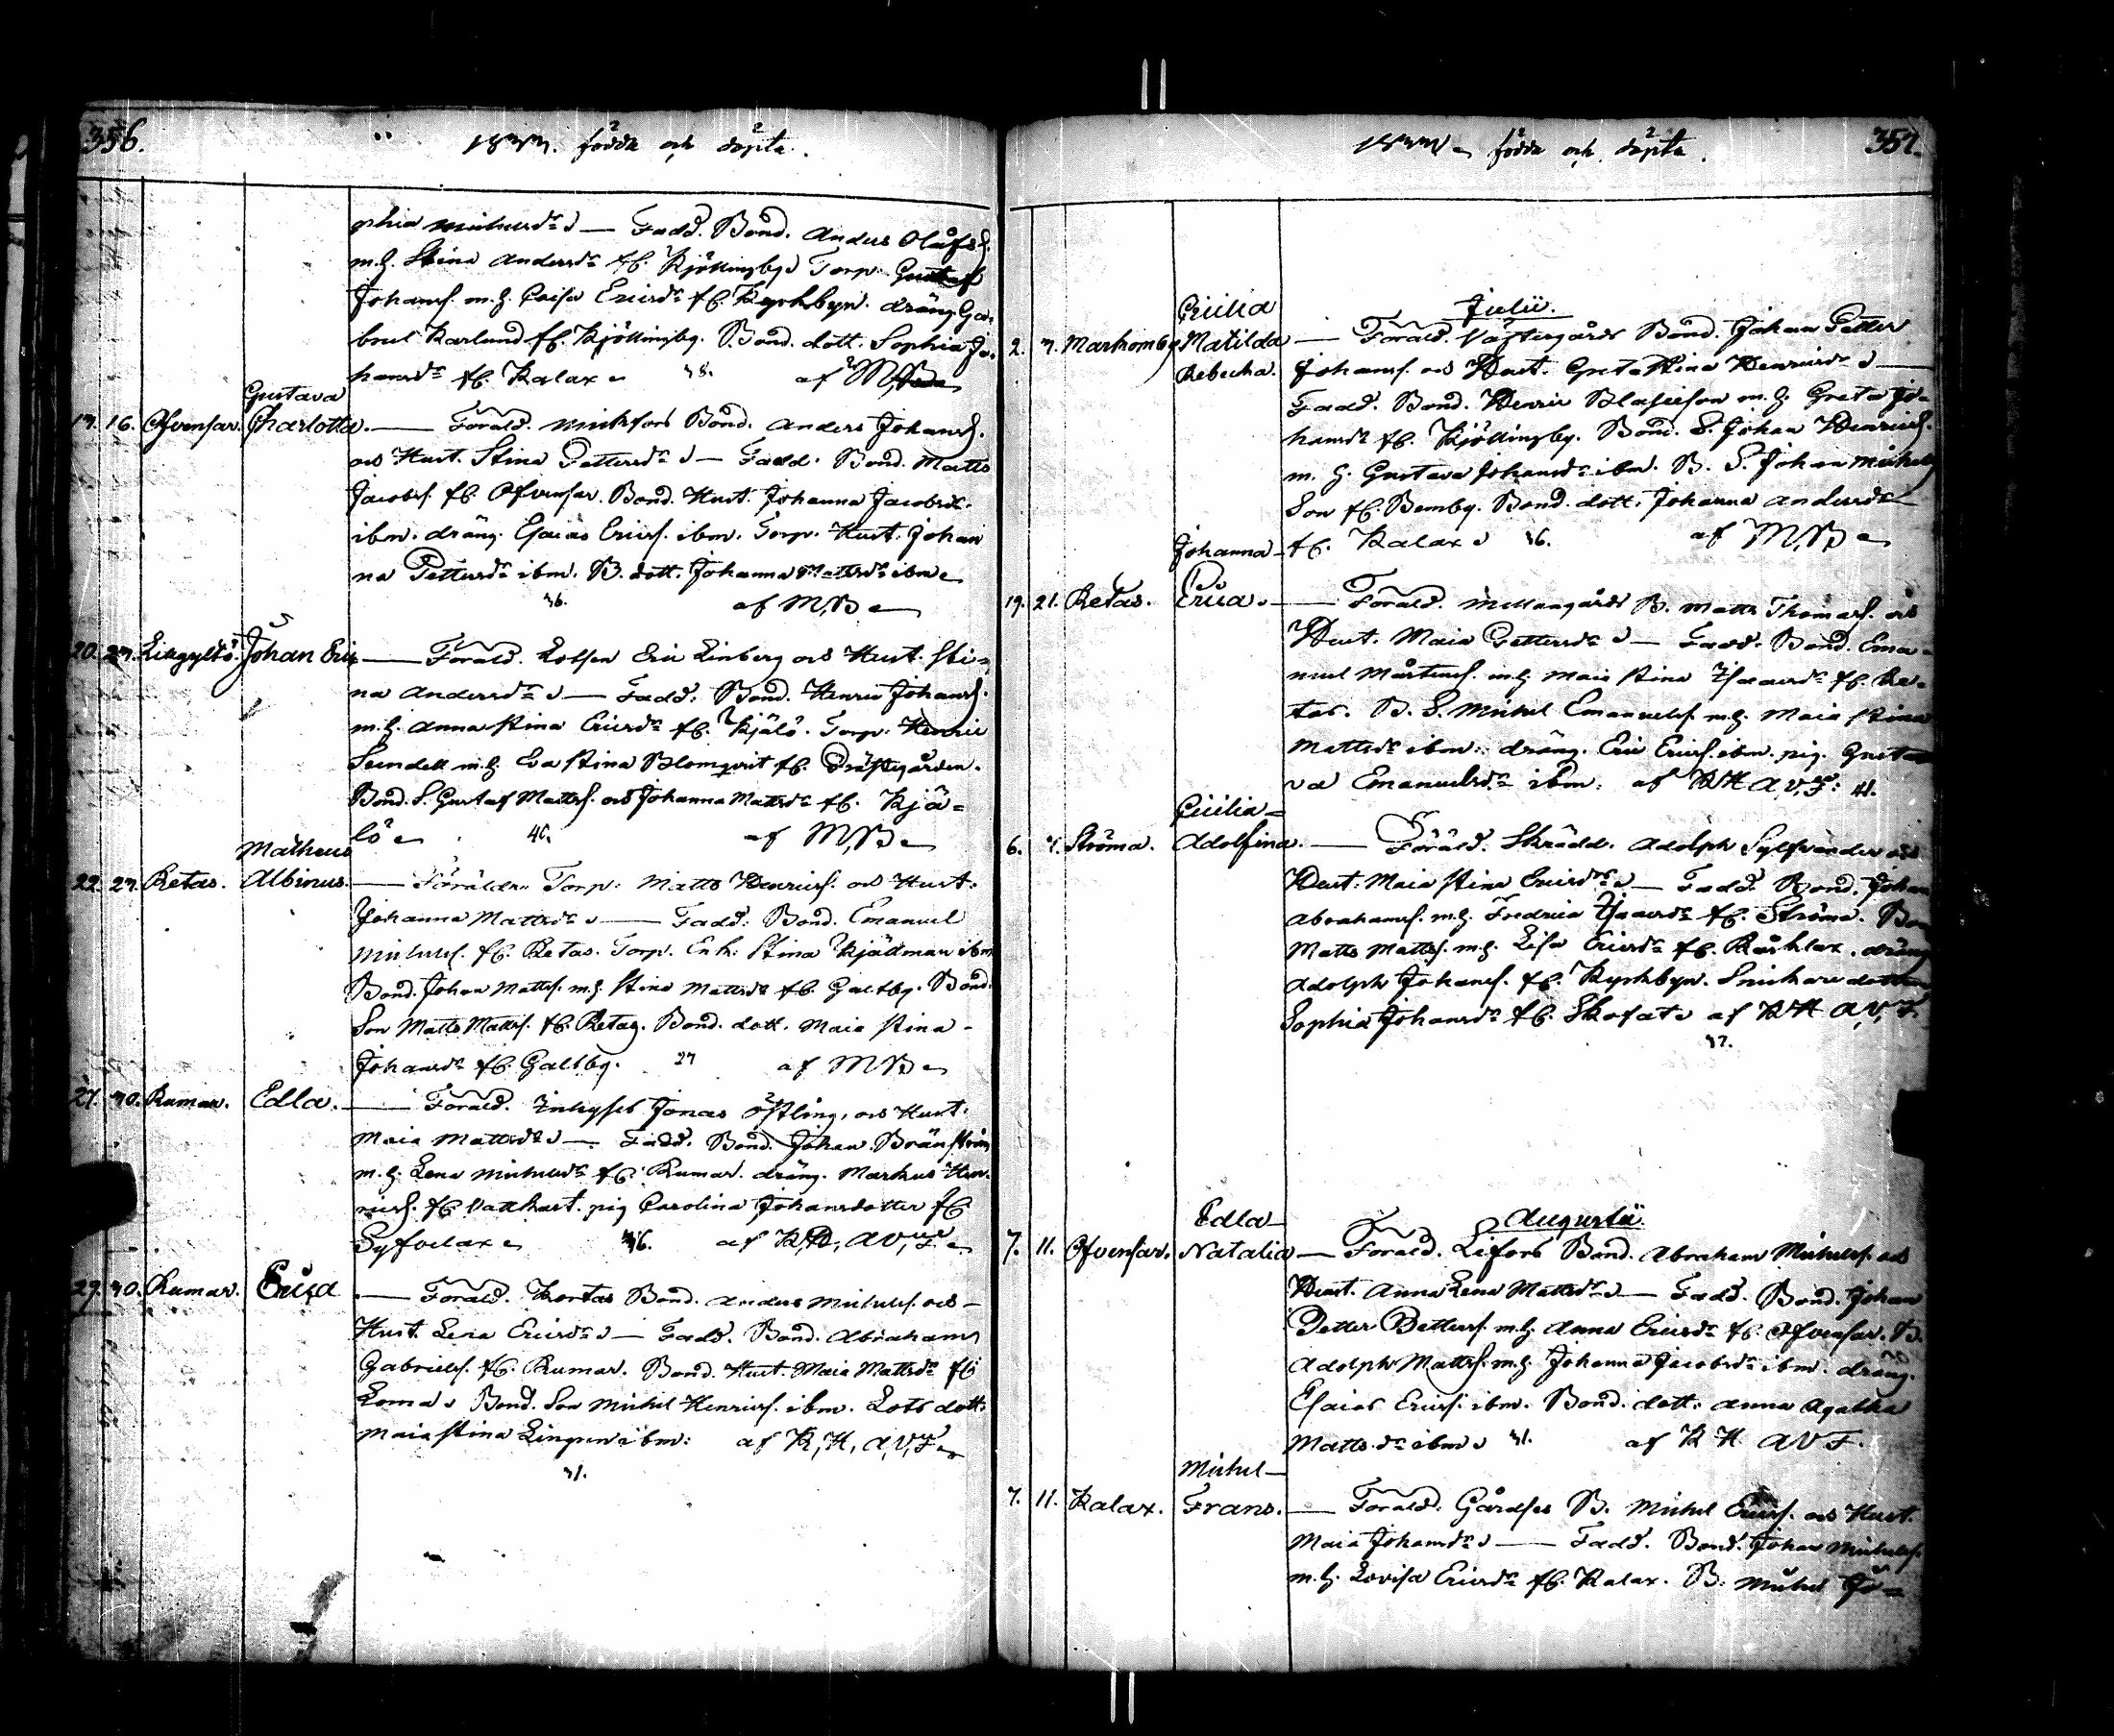 356.
1833. födde och döpte.
phia Michelsdr — Fadd. Bond. Anders Olofs.
m.h. Stina Andersdr fr. Kjöttingby Torp. Gustaf
Johans. m.h. Caisa Ericsdr fr. Kyrkbyn. dräng Ga-
briel Karlund fr. Kjöttingby. Bond. dott. Sophia Jo-
hansdr fr. Kalax 38. af
17. 16. Ofvensar. Gustava
Charlotta. — Föräld. Bond. Anders Johans.
och Hust. Stina Pettersdr — Fadd. Bond. Matts
Jacobs. fr. Ofvensar. Bond. Hust. Johanna Jacobsdr
ibm. dräng. Esaias Erics. ibm. Torp. Hust. Johan
na Pettersdr ibm. B. dott. Johanna Mattsdr ibm
36. af M,B
20. 23. Johan Eric — Föräld. Lotsen Eric Linberg och Hust. Sti-
na Andersdr — Fadd. Bond. Henric Johans.
m.h. Anna Stina Ericsdr fr. Kjälö. Torp. Henric
Sundell m.h. Eva Stina Blomqvist fr. Prästgården.
Bond. S. Gustaf Matts. och Johanna Mattsdr fr. Kjä-
lö 40. af M,B
22. 23. Retas. Matheus
Albinus. — Föräldr. Torp. Matts Henrics. och Hust.
Johanna Mattsdr — Fadd. Bond. Emanuel
Michels. fr. Retas. Torp. Enk. Stina Kjällman ibm
Bond. Johan Matts. m.h. Stina Mattsdr fr. Galtby. Bond.
Son Matts Matts. fr. Retas. Bond. dott. Maia Stina
Johansdr fr. Galtby. 27 af M B
27. 30. Rumar. Edla. — Föräld. Inhyses Jonas Östling, och Hust.
Maia Mattsdr — Fadd. Bond. Johan Bränström
m.h. Lena Michelsdr fr. Rumar. dräng. Markus Hen-
rics. fr. Vattkast. pig Carolina Johansdotter fr
Syfvelax 36. af K,H, A,V,F.
29. 30. Rumar. Erica — Föräld. Kortas Bond. Anders Michels. och
Hust. Lisa Ericsdr — Fadd. Bond. Abraham
Gabriels. fr. Rumar. Bond. Hust. Maia Mattsdr fr
Loma. Bond. Son Michel Henrics. ibm. Lots dott.
Maia Stina Lingren ibm: af K,H, A,V,F.
31.
1833 födde och döpte. 357.
Julii.
2. 7. Markomby Cecilia
Matilda
Rebecka. — Föräld. Västergårds Bond. Johan Petter
Johans. och Hust. Greta Stina Henricsdr —
Fadd. Bond. Henric Blasieson m.h. Greta Jo-
hansdr fr. Kjöttingby. Bond. S. Johan Henrics.
m.h. Gustava Johansdr ibm. B. S. Johan Michels
Son fr. Bemby. Bond. dott. Johanna Andersdr
fr. Kalax 36. af M,B
19. 21. Retas. Johanna
Erica. — Föräld. Mellangårds B. Matts Thomas. och
Hust. Maia Pettersdr — Fadd. Bond. Ema-
nuel Mårtens. m.h. Maia Stina Isaacsdr fr. Re-
tas. B. S. Michel Emanuels. m.h. Maia Stina
Mattsdr ibm. dräng. Eric Erics. ibm. pig. Gusta
va Emanuelsdr ibm. af K H A,V,F. 41.
6. 7. Ströma. Cecilia
Adolfina. — Föräld. Skrädd. Adolph Sylfvander och
Hust. Maia Stina Ericsdr — Fadd. Bond. Johan
Abrahams. m.h. Fredrica Isaacsdr fr. Ströma. Bon
Matts Matts. m.h. Lisa Ericsdr fr. Kårklax. dräng
Adolph Johans. fr. Kyrkbyn. Snickare dotter
Sophia Johansdr fr. Skofate af K H A,V,F.
37.
Augusti.
7. 11. Ofvensar. Edla
Natalia — Föräld. Lifors Bond. Abraham Michels. och
Hust. Anna Lena Mattsdr — Fadd. Bond. Johan
Petter Petters. m.h. Anna Ericsdr fr. Ofvensar. B.
Adolph Matts. m.h. Johanna Jacobsdr ibm. dräng.
Esaias Erics. ibm. Bond. dott. Anna Agatha
Mattsdr ibm 31. af K H A V F.
7. 11. Kalax. Michel
Frans. — Föräld. Gårdses B. Michel Erics. och Hust.
Maia Johansdr — Fadd. Bond. Johan Michels.
m.h. Lovisa Ericsdr fr. Kalax. B. Michel Jo=